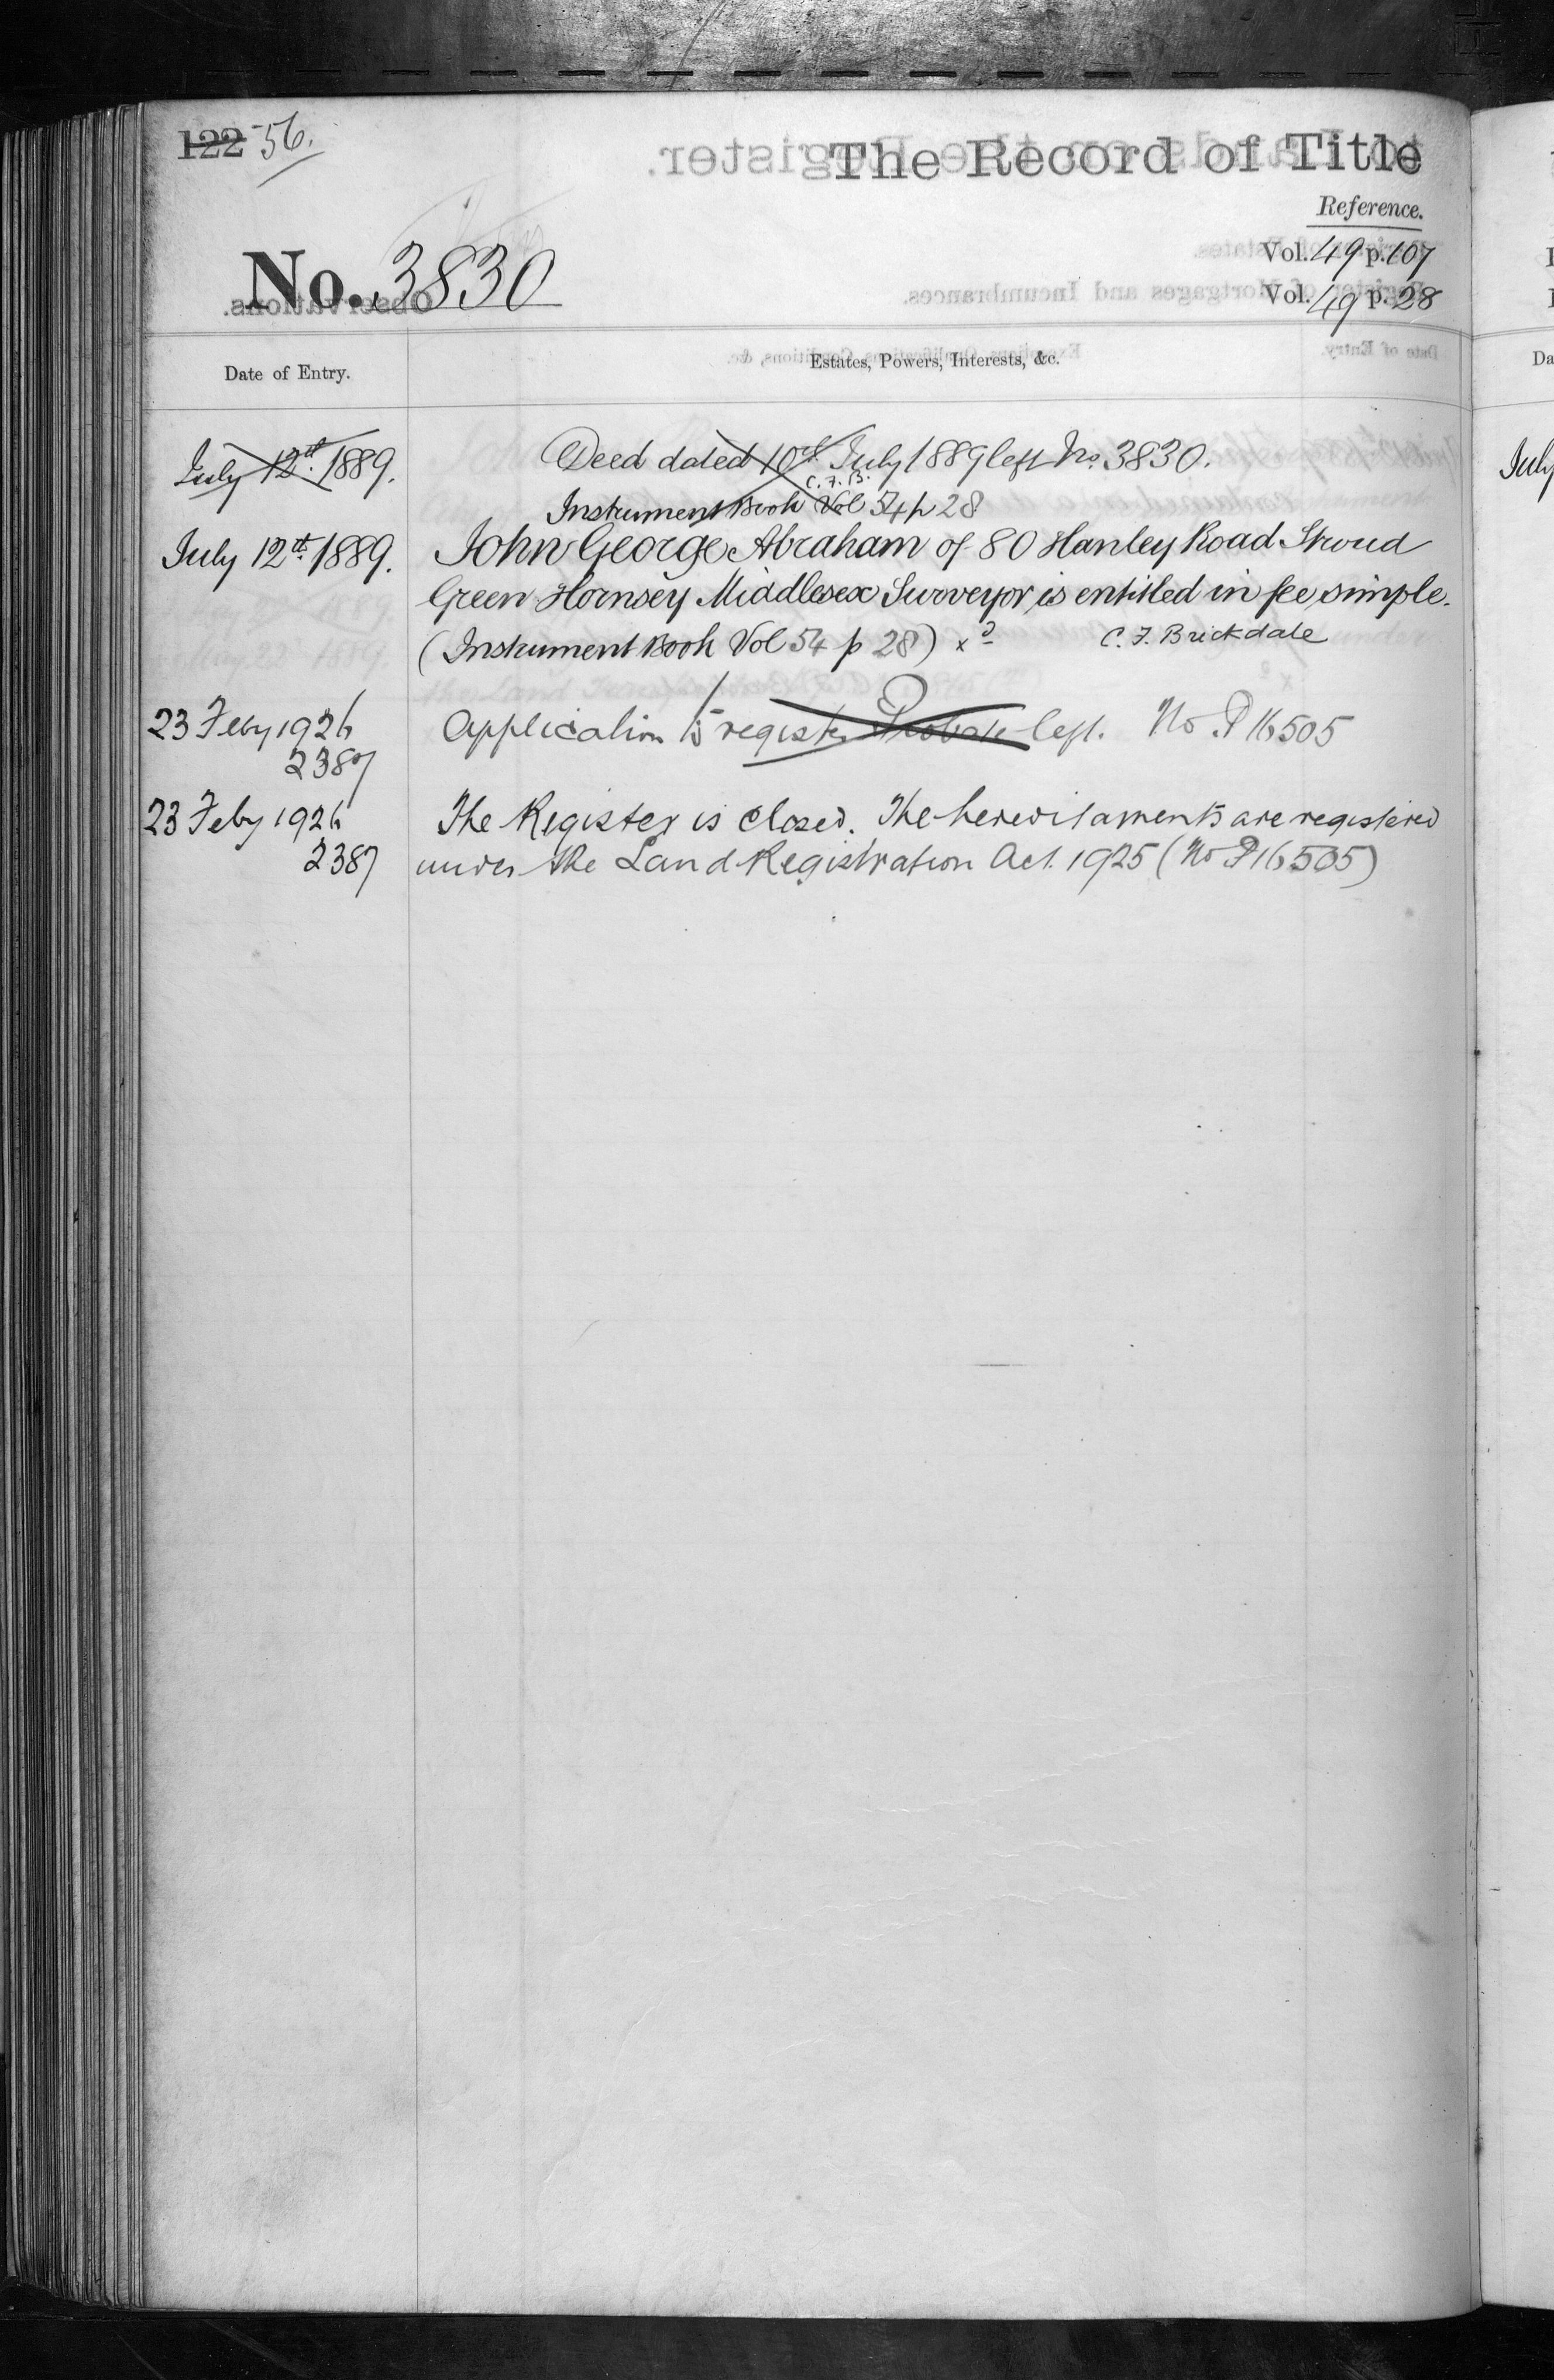 122 56.
The Record of Title
Reference.
Vol. 49 p. 107
No. 3830
Vol. 49 p. 28
Date of Entry.
Estates, Powers, Interests, &c.
July 12th 1889.
Deed dated 10th July 1889 left No. 3830.
C. F. B.
Instrument Book Vol 54 p 28
July 12th 1889.
John George Abraham of 80 Hanley Road Stroud
Green Hornsey Middlesex Surveyor is entitled in fee simple.
(Instrument Book Vol 54 p 28)
C. F. Brickdale
23 Feby 1926
Application to register Probate left. No. P 16505
2387
23 Feby 1926
The Register is closed. The hereditaments are registered
2387
under the Land Registration Act 1925 (No P 16505)
July
Da